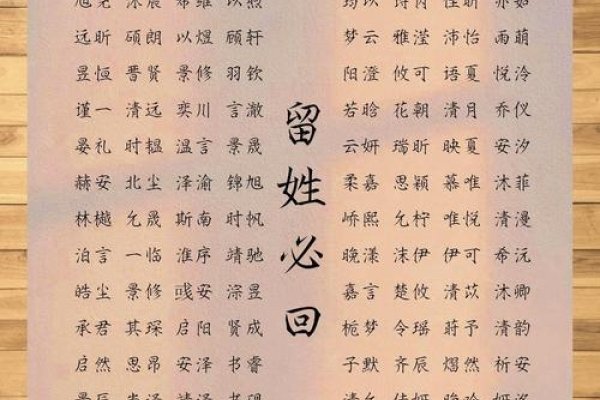 远昕 硕朗 以煜 顾轩
昱恒 晋贤 景修 羽钦
谨一 清远 奕川 言澈
晏礼 时韫 温言 景晟
赫安 北尘 泽渝 锦旭
林樾 允晟 斯南 时帆
泊言 一临 淮序 靖驰
皓尘 景修 彧安 淙昱
承君 其琛 启阳 贤成
启然 思昂 安泽 书睿
留姓必回
梦云 雅滢 沛怡 雨萌
阳澄 攸可 语夏 悦泠
若晗 花朝 清月 乔仪
云妍 瑞昕 映夏 安汐
柔嘉 思颖 慕唯 沐菲
峤熙 允柠 唯悦 清漫
晚漾 沫伊 伊可 希沅
嘉言 楚攸 清苡 沐卿
栀梦 令瑶 莳予 清韵
子默 齐辰 熠然 祈安